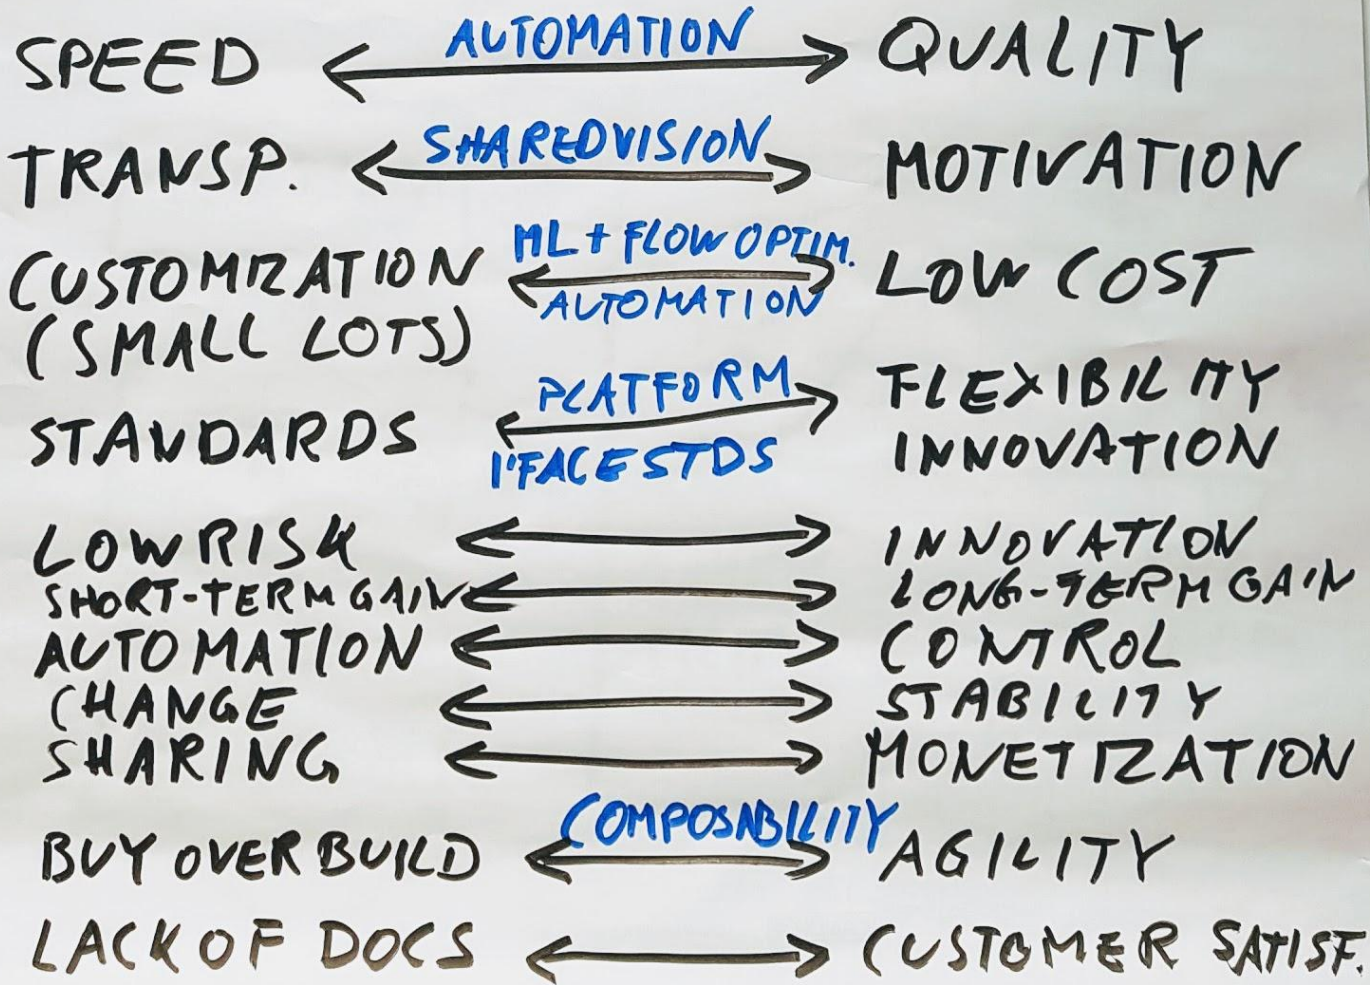 SPEED AUTOMATION QUALITY
TRANSP. SHARED VISION MOTIVATION
CUSTOMIZATION ML + FLOW OPTIM. LOW COST
(SMALL LOTS) AUTOMATION
STANDARDS PLATFORM FLEXIBILITY
I'FACE STDS INNOVATION
LOW RISK INNOVATION
SHORT-TERM GAIN LONG-TERM GAIN
AUTOMATION CONTROL
CHANGE STABILITY
SHARING MONETIZATION
BUY OVER BUILD COMPOSABILITY AGILITY
LACK OF DOCS CUSTOMER SATISF.